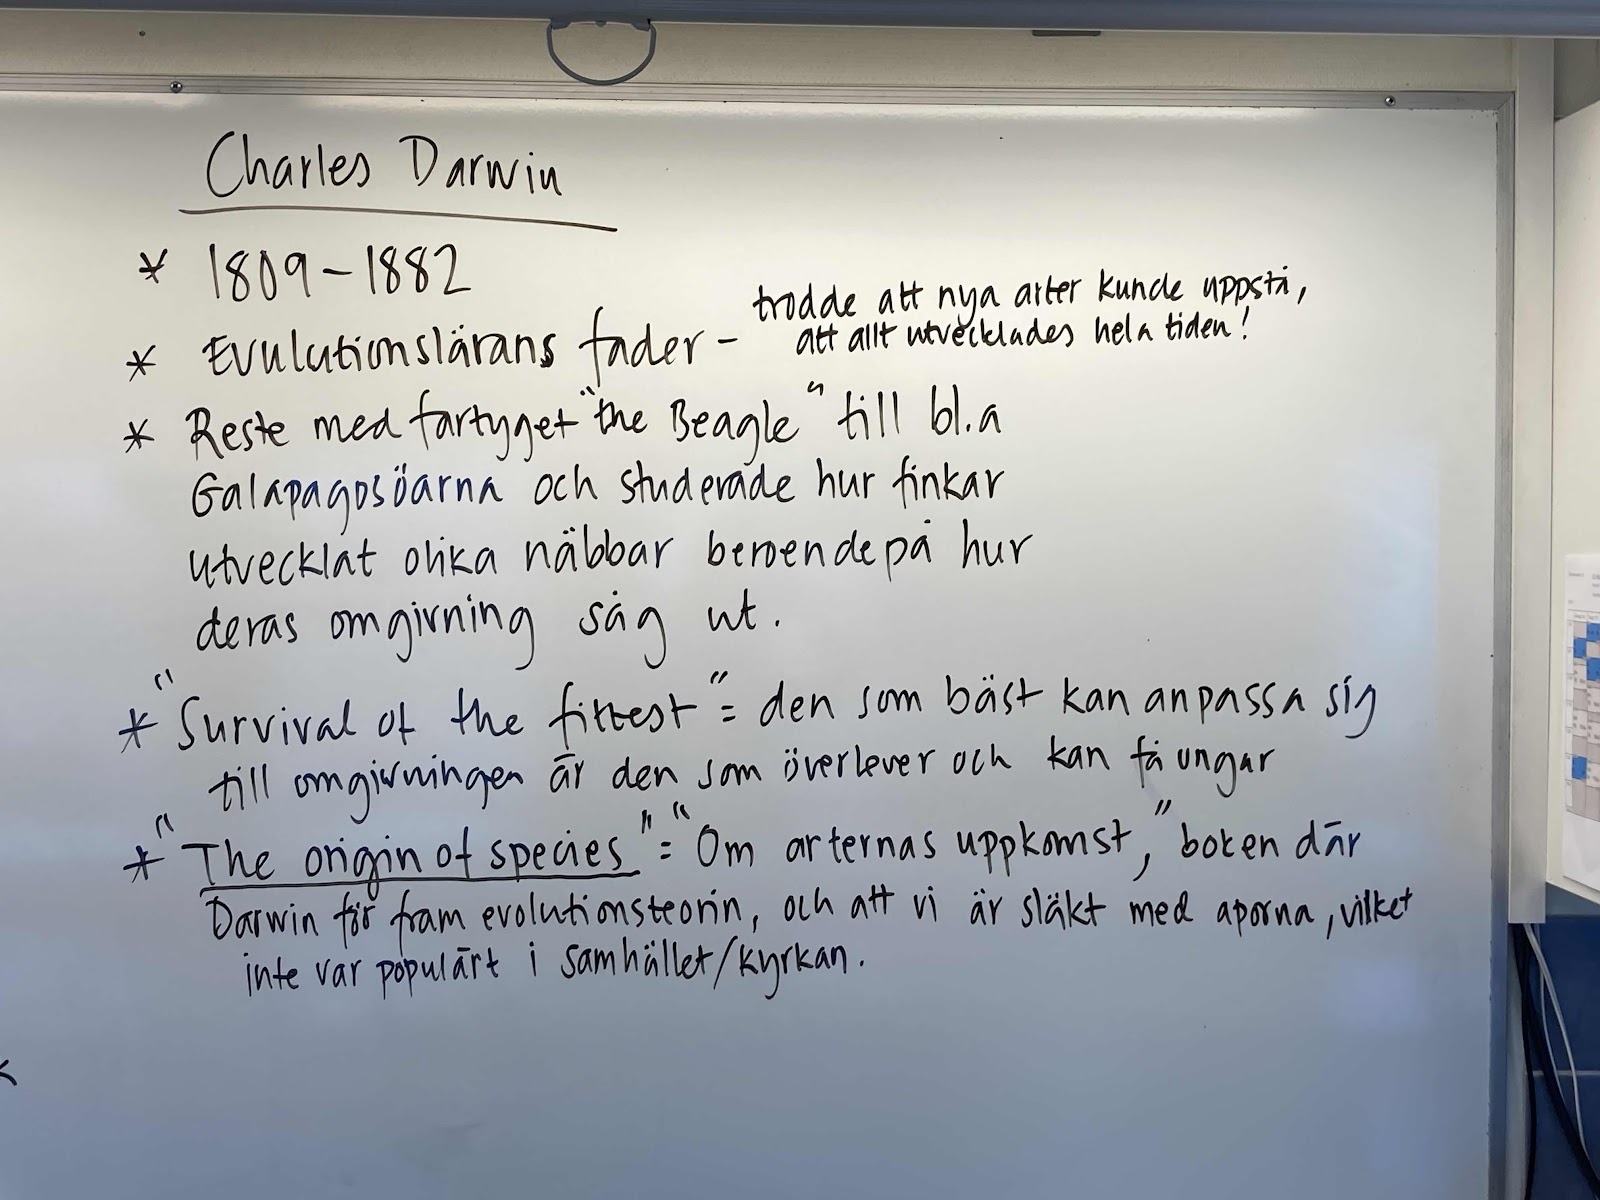 Charles Darwin
* 1809-1882
* Evulutionslärans fader - trodde att nya arter kunde uppstå,
att allt utvecklades hela tiden!
* Reste med fartyget "the Beagle" till bl.a
Galapagosöarna och studerade hur finkar
utvecklat olika näbbar beroende på hur
deras omgivning såg ut.
* "Survival of the fittest" = den som bäst kan anpassa sig
till omgivningen är den som överlever och kan få ungar
* "The origin of species" = "Om arternas uppkomst," boken där
Darwin för fram evolutionsteorin, och att vi är släkt med aporna, vilket
inte var populärt i samhället/kyrkan.